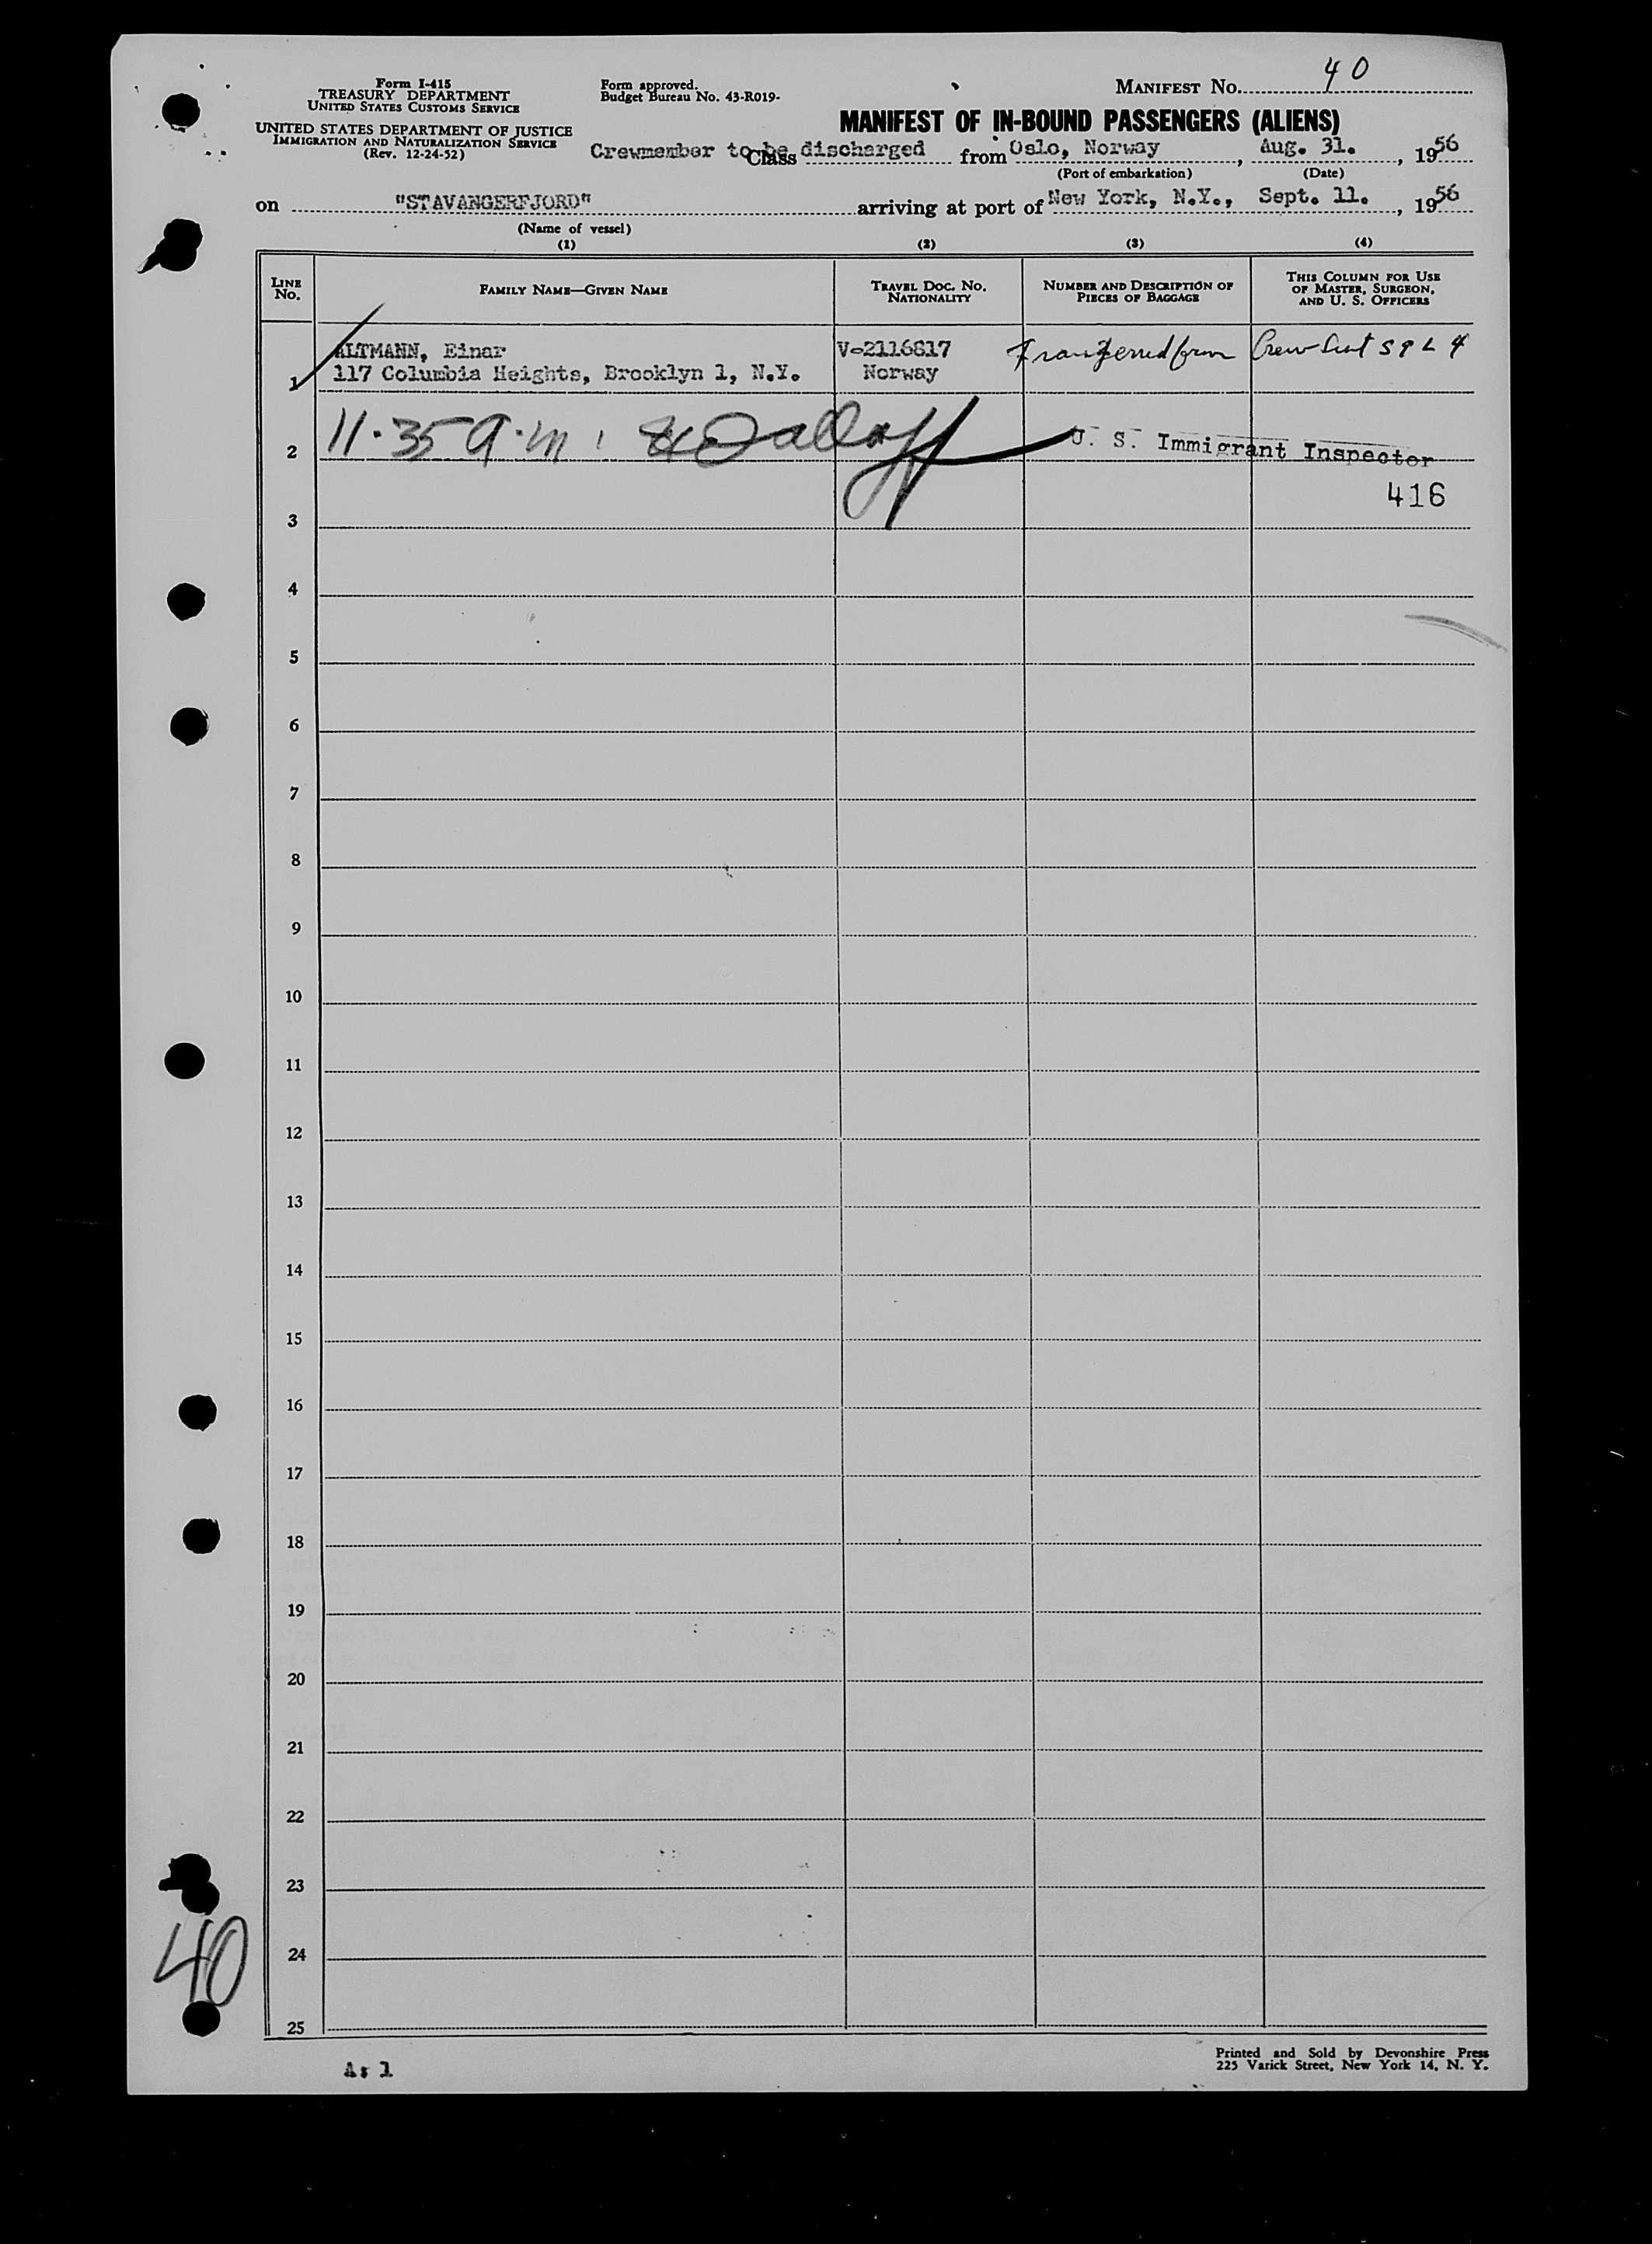 Form I-415
TREASURY DEPARTMENT
UNITED STATES CUSTOMS SERVICE
UNITED STATES DEPARTMENT OF JUSTICE
IMMIGRATION AND NATURALIZATION SERVICE
(Rev. 12-24-52)
Form approved.
Budget Bureau No. 43-R019-
MANIFEST NO. 40
MANIFEST OF IN-BOUND PASSENGERS (ALIENS)
Class Crewmember to be discharged from Oslo, Norway, Aug. 31., 1956
(Port of embarkation) (Date)
on "STAVANGERFJORD" arriving at port of New York, N.Y., Sept. 11., 1956
(Name of vessel)
(1) (2) (3) (4)
LINE NO.
FAMILY NAME—GIVEN NAME
TRAVEL DOC. NO.
NATIONALITY
NUMBER AND DESCRIPTION OF
PIECES OF BAGGAGE
THIS COLUMN FOR USE
OF MASTER, SURGEON,
AND U. S. OFFICERS
ALTMANN, Einar V-2116817 Transferred from Crew List S P L 4
1 117 Columbia Heights, Brooklyn 1, N.Y. Norway
2 11.35 a.m. U. S. Immigrant Inspector
416
3
4
5
6
7
8
9
10
11
12
13
14
15
16
17
18
19
20
21
22
23
24
25
40
A: 1
Printed and Sold by Devonshire Press
225 Varick Street, New York 14, N. Y.